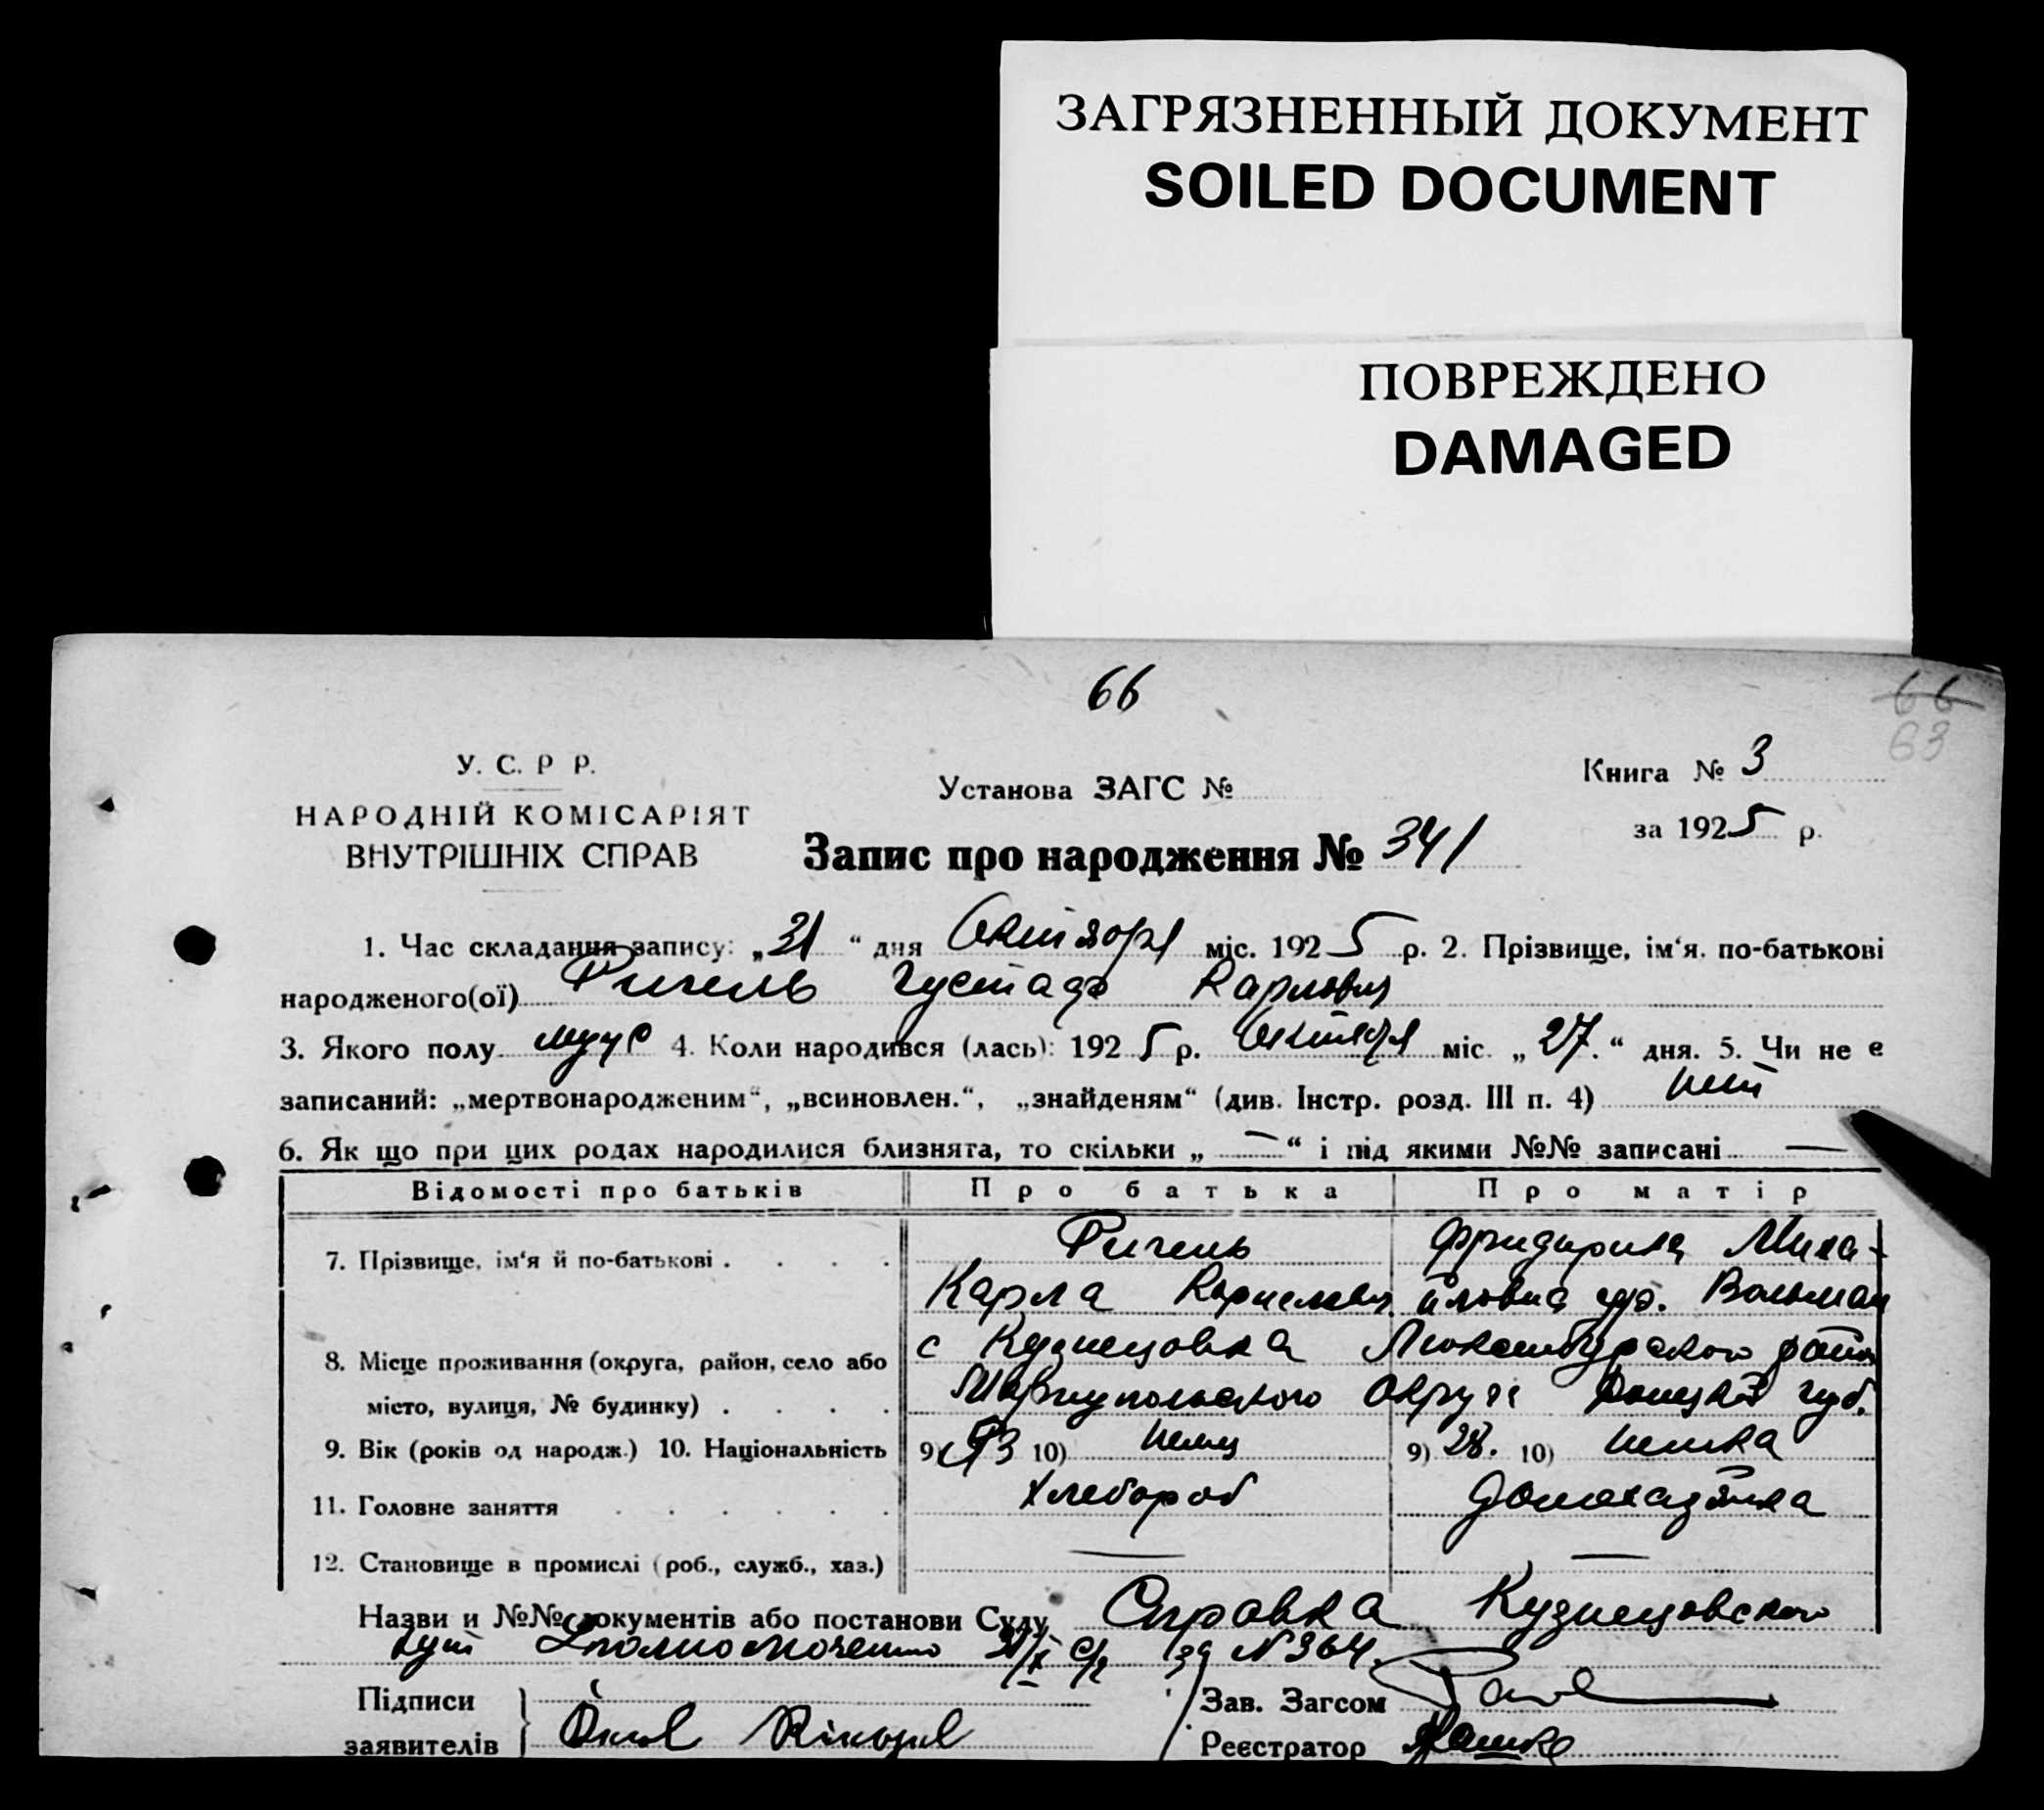 ЗАГРЯЗНЕННЫЙ ДОКУМЕНТ
SOILED DOCUMENT
ПОВРЕЖДЕНО
DAMAGED
66
66
63
У. С. Р Р.
НАРОДНІЙ КОМІСАРІЯТ
ВНУТРІШНІХ СПРАВ
Установа ЗАГС №
Запис про народження № 341
Книга № 3
за 1925 р.
1. Час складання запису: „31“ дня Октября міс. 1925 р. 2. Прізвище, ім‘я, по-батькові
народженого(ої) Густаф Карлович
3. Якого полу муж 4. Коли народився (лась): 1925 р. Октября міс. „27.“ дня. 5. Чи не є
записаний: „мертвонародженим“, „всиновлен.“, „знайденям“ (див. Інстр. розд. III п. 4) нет
6. Як що при цих родах народилися близняга, то скільки „ — “ і під якими №№ записані —
Відомості про батьків Про батька Про матір
7. Прізвище, ім‘я й по-батькові . . . . Фридирика Миха-
Карла йловна
8. Місце проживання (округа, район, село або с Кузнецовка Люксембурского район
місто, вулиця, № будинку) . . . . Мариупольского Округа Донецкой губ.
9. Вік (років од народж.) 10. Національність 9) 10) немец 9) 28. 10) немка
11. Головне заняття . . . . . . Хлебороб домохазяйка
12. Становище в промислі (роб., служб., хаз.) — —
Назви и №№ документів або постанови Суду Справка Кузнецовского
31/X с/г за N 364.
Підписи
заявителів
Зав. Загсом
Реєстратор